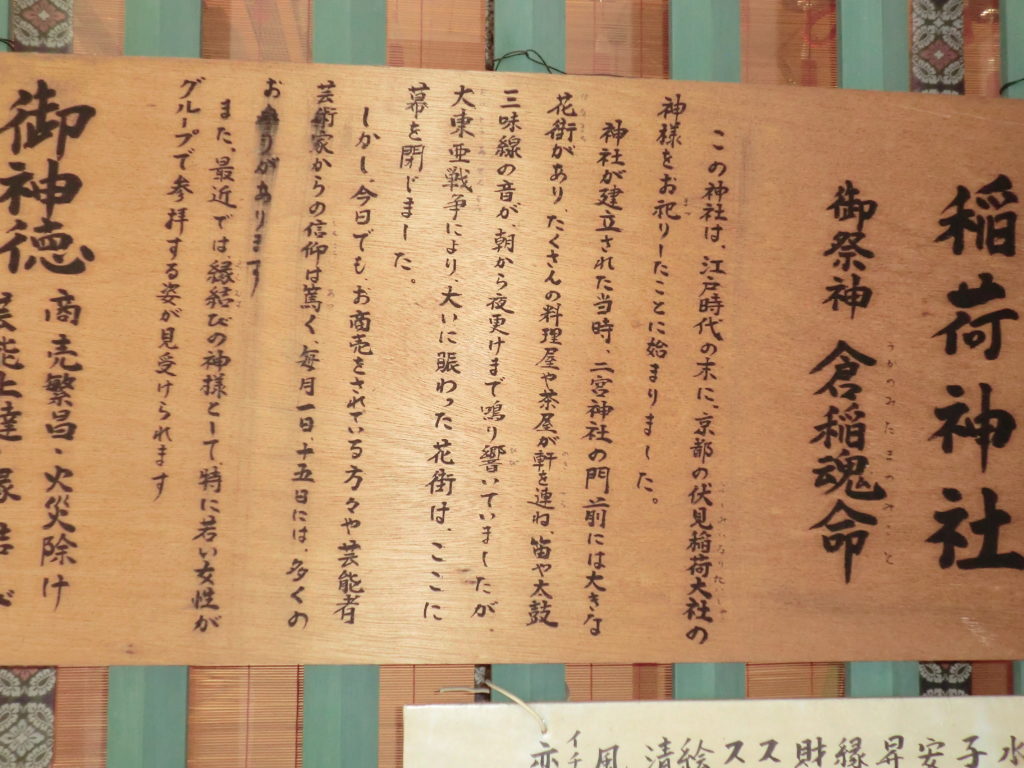 稲荷神社
御祭神 倉稲魂命
うかのみたまのみこと
この神社は、江戸時代の末に、京都の伏見稲荷大社の
神様をお祀りしたことに始まりました。
神社が建立された当時、二宮神社の門前には大きな
花街があり、たくさんの料理屋や茶屋が軒を連ね、笛や太鼓
三味線の音が、朝から夜更けまで鳴り響いていましたが
大東亜戦争により、大いに賑わった花街は、ここに
幕を閉じました。
しかし、今日でも、お商売をされている方々や芸能者
芸術家からの信仰は篤く、毎月一日、十五日には、多くの
お参りがあります
また、最近では縁結びの神様として特に若い女性が
グループで参拝する姿が見受けられます
御神徳 商売繁昌・火災除け
芸能上達・縁結び
水子安昇縁財スス絵清風